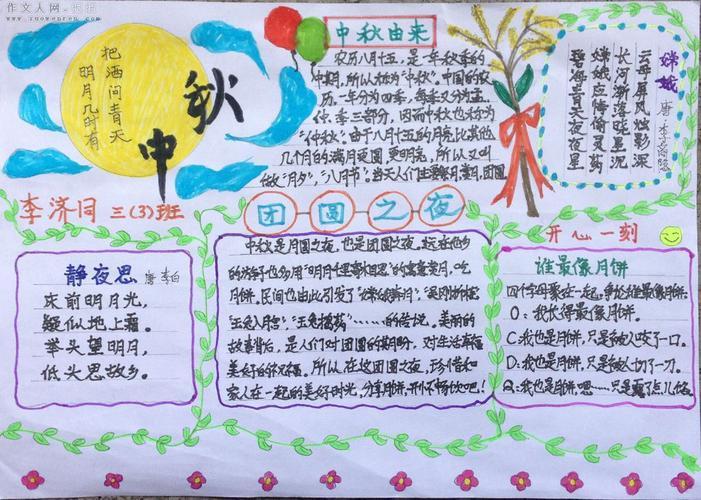 作文人网
www.zuowenren.com
把酒问青天
明月几时有
中秋
中秋由来
农历八月十五，是一年秋季的
中期，所以称为“中秋”。中国的农
历，一年分为四季，每季又分孟、
仲、季三部分，因而中秋也称为
“仲秋”。由于八月十五的月亮比其他
几个月的满月更圆，更明亮，所以又叫
做“月夕”，“八月节”。
嫦娥
唐 李商隐
云母屏风烛影深
长河渐落晓星沉
嫦娥应悔偷灵药
碧海青天夜夜心
李济同 三(3)班
静夜思 唐 李白
床前明月光，
疑似地上霜。
举头望明月，
低头思故乡。
团圆之夜
中秋是月圆之夜，也是团圆之夜。
月饼，民间也由此引发了“嫦娥奔月”，“吴刚折桂”
“玉兔入月宫”，“玉兔捣药”……的传说。美丽的
故事背后，是人们对团圆的期盼，对生活幸福
美好的祝福。所以，在这团圆之夜，珍惜和
家人在一起的美好时光，分享月饼，开怀畅饮吧！
开心一刻
谁最像月饼
四个字母聚在一起，争论谁最像月饼。
O：我长得最像月饼。
C：我也是月饼，只是被人咬了一口。
D：我也是月饼，只是被人切了一刀。
Q：我也是月饼，嗯……只是露了点儿馅。